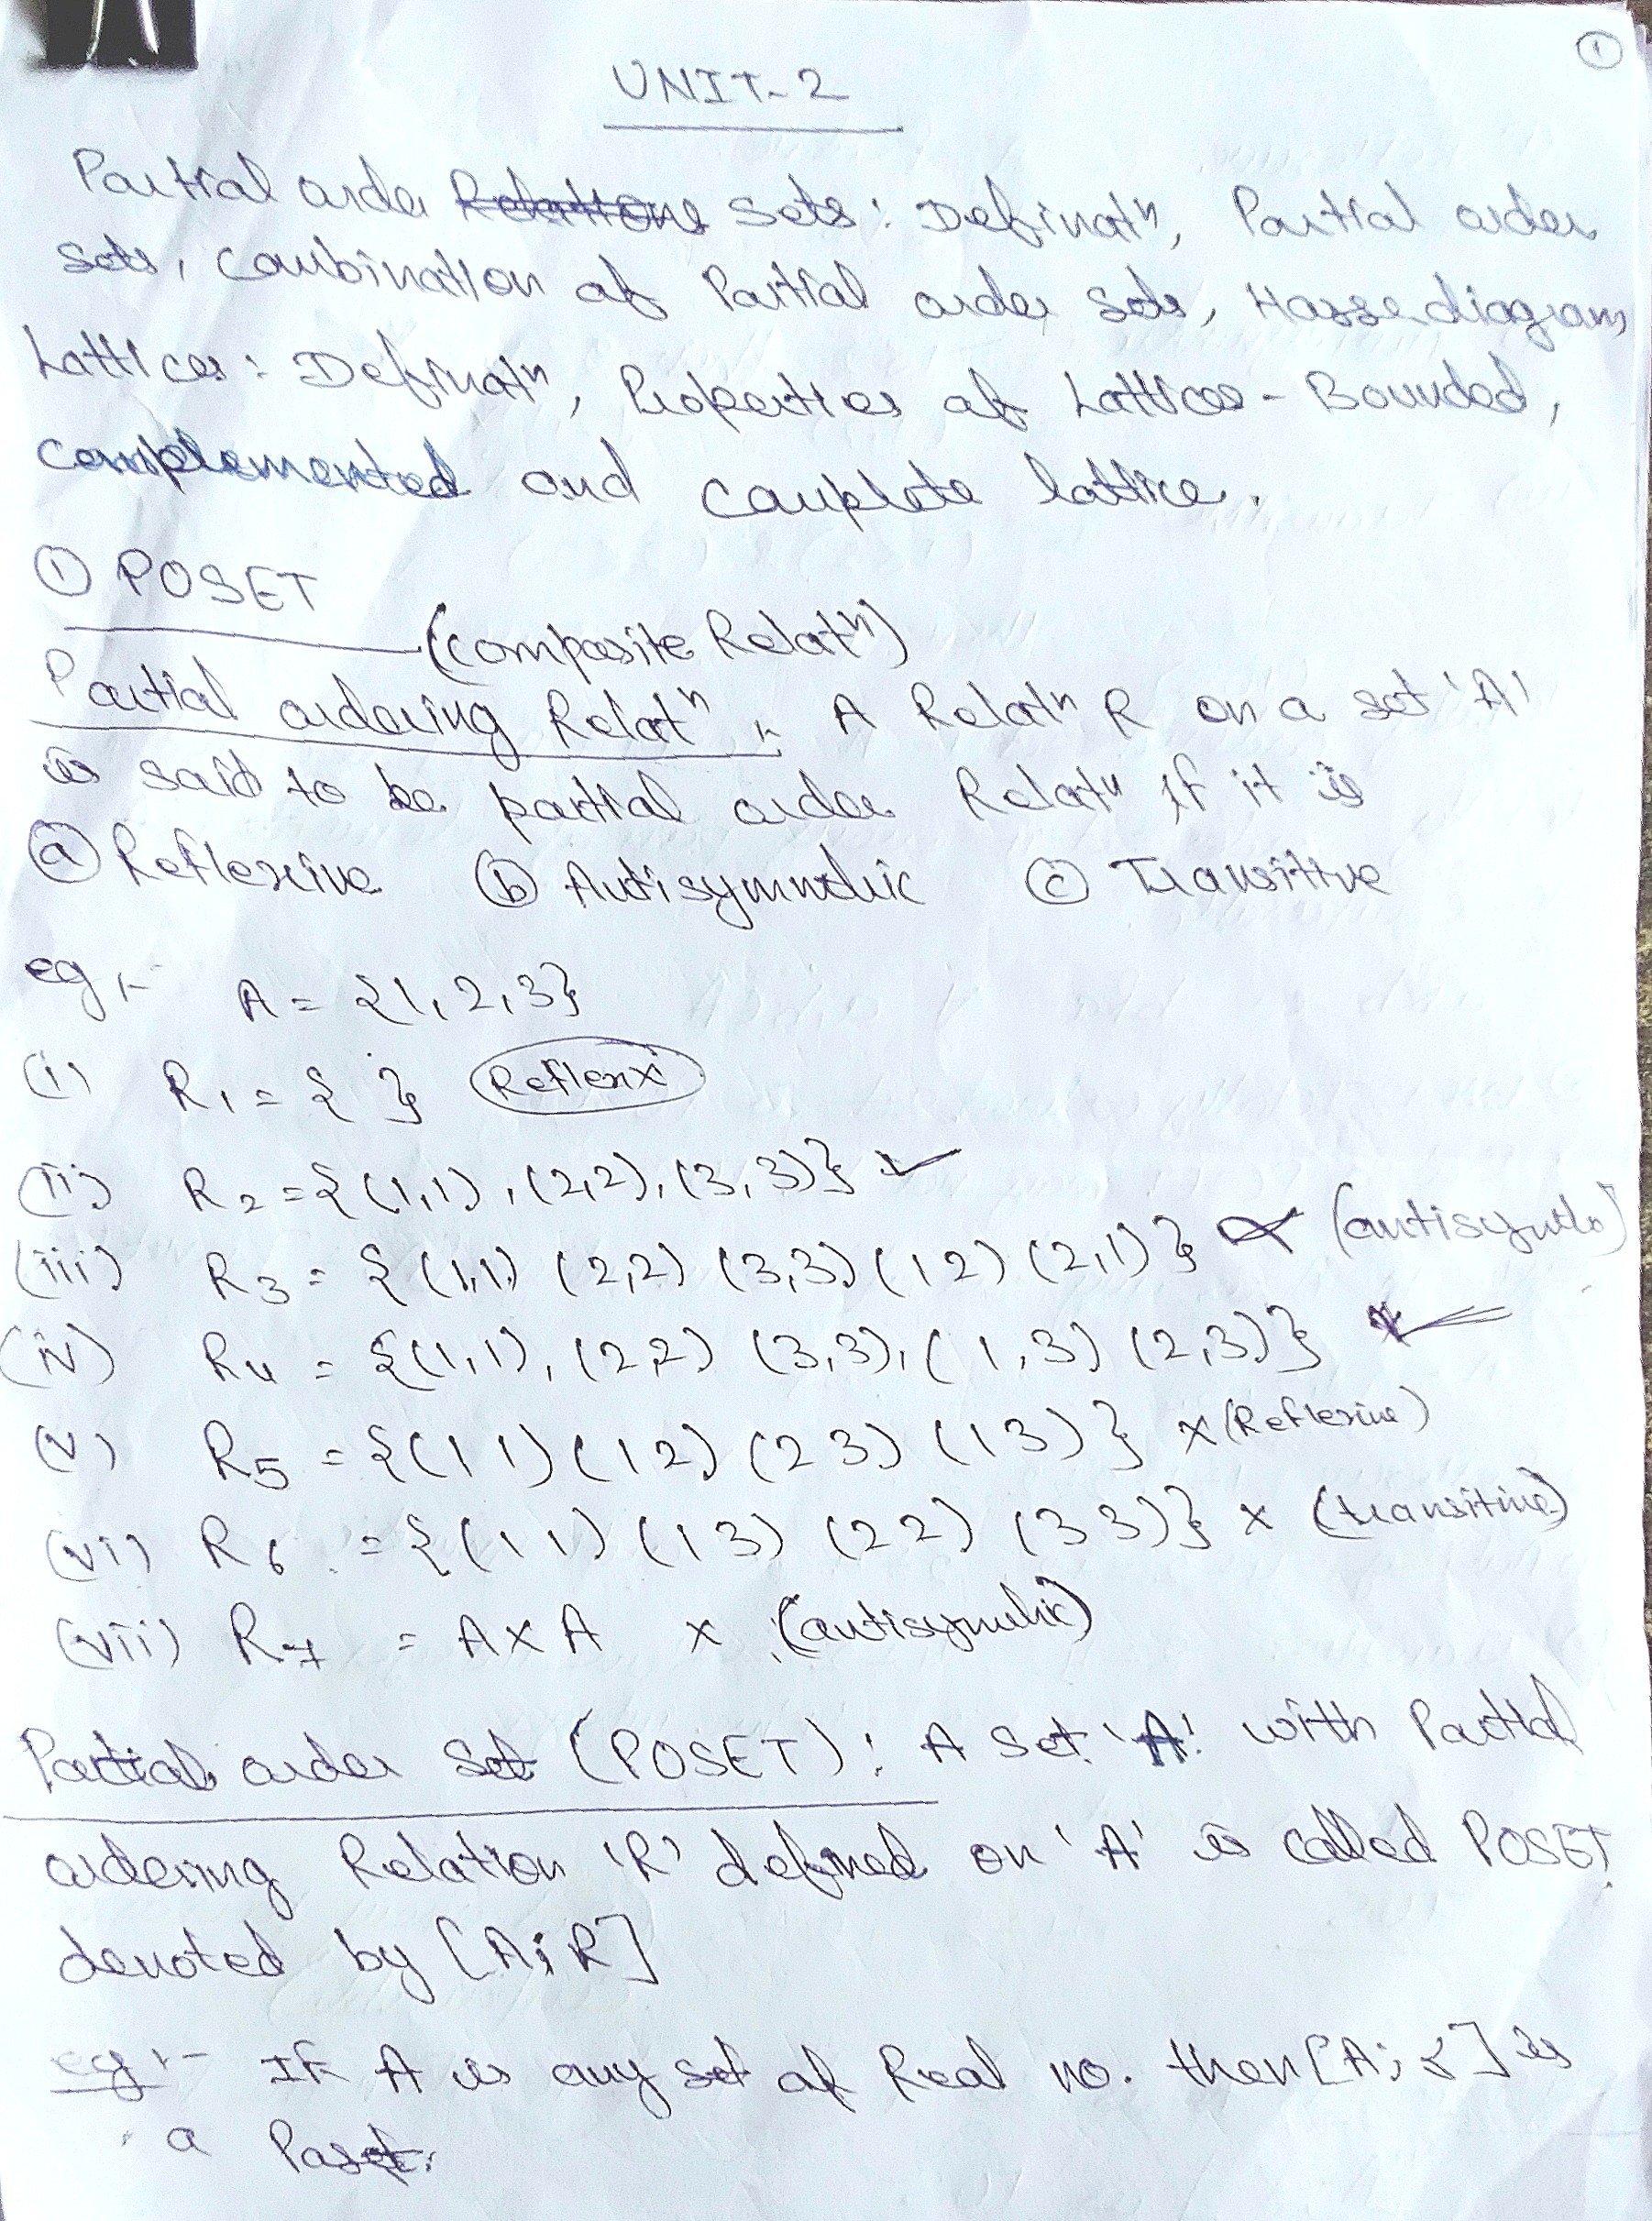 ①
UNIT-2
Partial order Relations sets: Definatⁿ, Partial order
sets, Combination of Partial order sets, Hasse diagram,
Lattices: Definatⁿ, Properties of Lattices - Bounded,
Complemented and Complete lattice.
① POSET
(Composite Relatⁿ)
Partial ordering Relatⁿ :- A Relatⁿ R on a set 'A'
is said to be partial order Relatⁿ if it is
ⓐ Reflexive ⓑ Antisymmetric ⓒ Transitive
eg :- A = {1, 2, 3}
(i) R₁ = { } Reflexi
(ii) R₂ = {(1,1), (2,2), (3,3)} ✓
(iii) R₃ = {(1,1) (2,2) (3,3) (1 2) (2,1)} × (antisymtc)
(iv) R₄ = {(1,1), (2,2) (3,3), (1,3) (2,3)} ✓
(v) R₅ = {(1 1) (1 2) (2 3) (1 3)} × (Reflexive)
(vi) R₆ = {(1 1) (1 3) (2 2) (3 3)} × (transitive)
(vii) R₇ = A × A × (antisymetric)
Partial order set (POSET): A set 'A' with Partial
ordering Relation 'R' defined on 'A' is called POSET
denoted by [A; R]
eg :- If A is any set of Real no. then [A; ≤] is
a Poset.